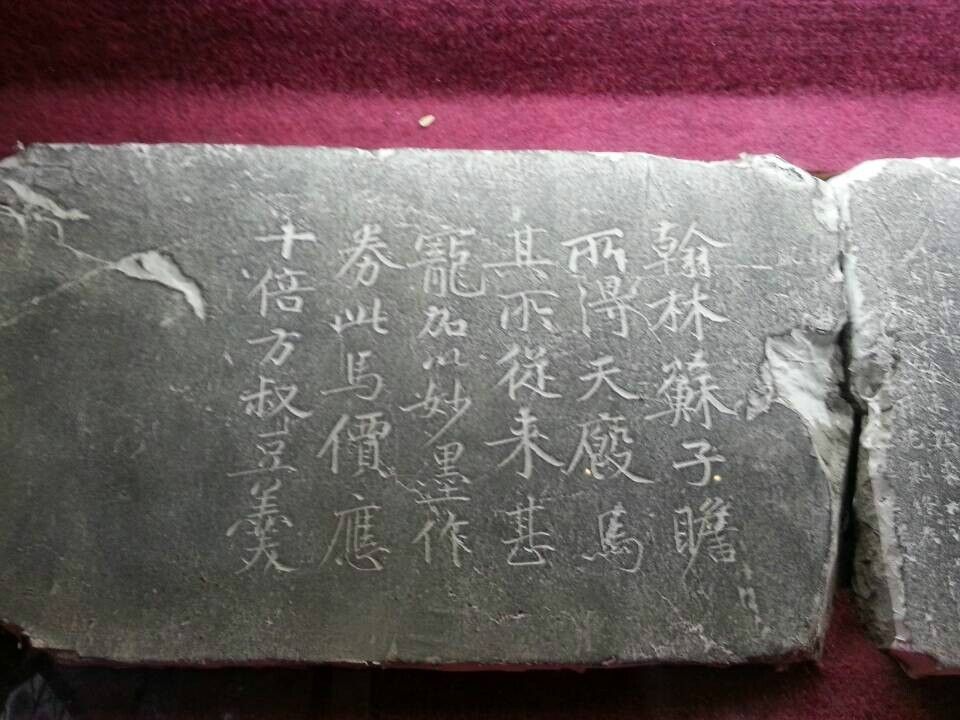 翰林蘇子瞻
所得天廄馬
其所從来甚
寵加以妙墨作
券此馬價應
十倍方叔豆羹